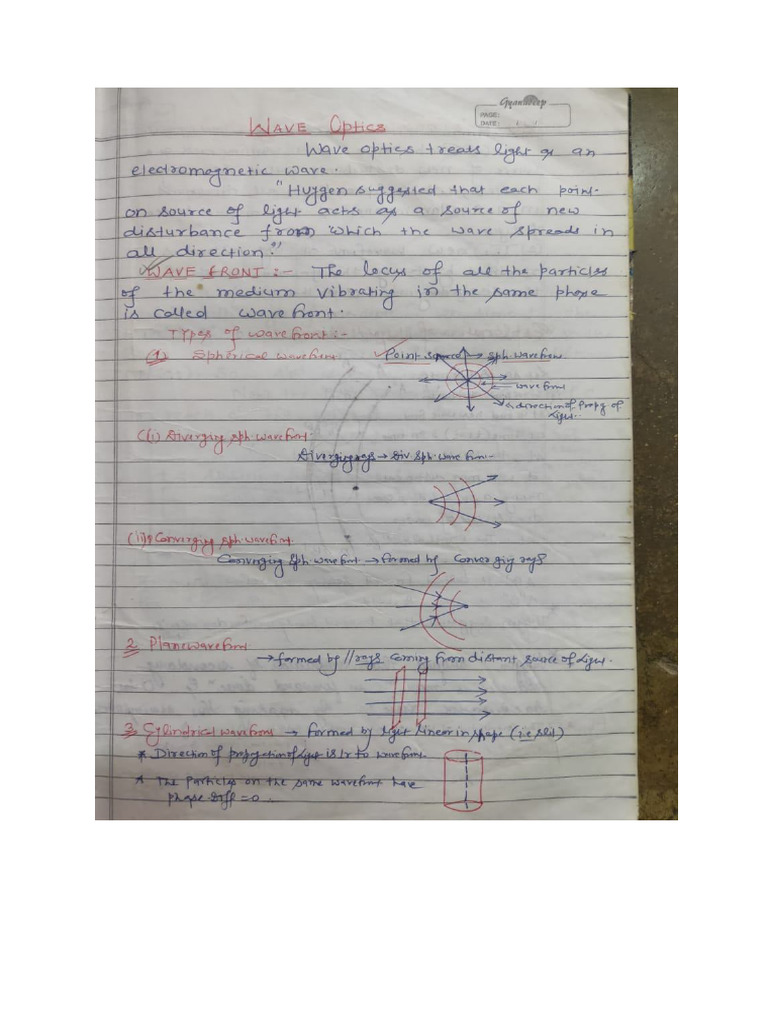 Gyandeep
PAGE:
DATE: / /
WAVE Optics
Wave optics treats light as an
electromagnetic wave.
"Huygen suggested that each point
on source of light acts as a source of new
disturbance from which the wave spreads in
all direction."
WAVE FRONT :- The locus of all the particles
of the medium vibrating in the same phase
is called wavefront.
Types of wavefront :-
(1) Spherical wavefront. Point source → sph. wavefront
wavefront
direction of Propg of
Light..
(i) Diverging sph. wavefront.
Diverging rays → Div. Sph. wavefron.-
(ii) Converging sph. wavefront.
Converging Sph. wavefront → formed by Converging rays
2 Plane wavefront
→ formed by // rays coming from distant source of light.
3 Cylindrical wavefront → formed by light linear in shape (i.e slit)
* Direction of propagation of light is ⊥r to wavefront.
* The particles on the same wavefront have
phase diff = 0.